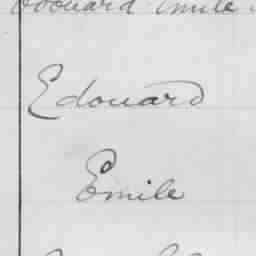 Edouard Emile
Edouard
Emile